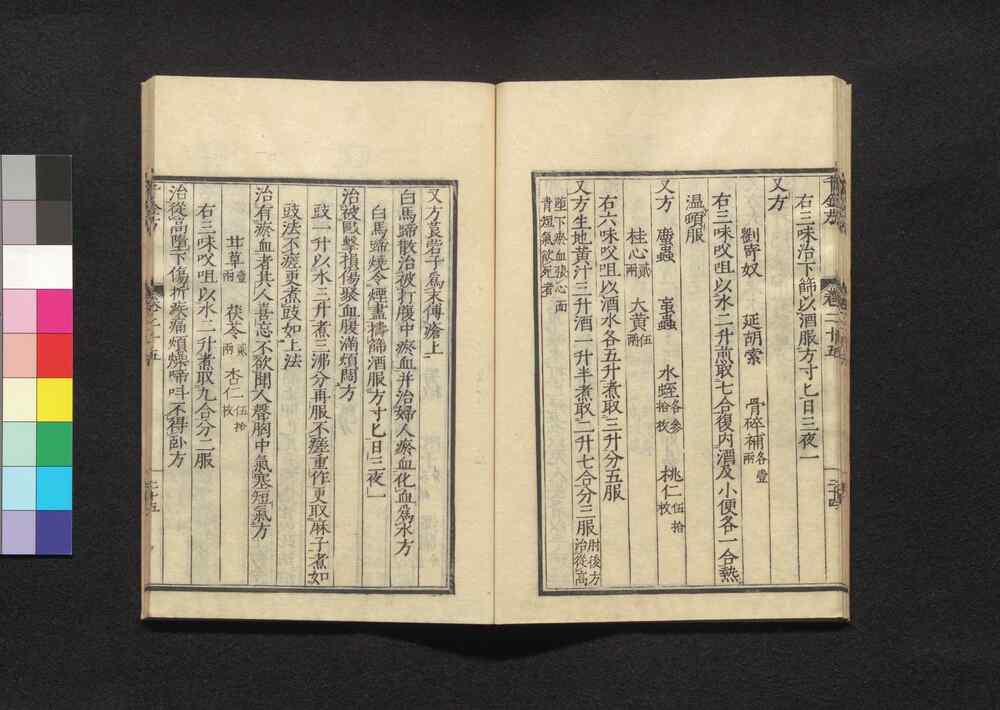 右三味治下篩以酒服方寸匕日三夜一
又方
劉寄奴 延胡索 骨碎補各壹兩
右三味㕮咀以水二升煎取七合復內酒及小便各一合熱
溫頓服
又方 䗪蟲 蝱蟲 水蛭各參拾枚 桃仁伍拾枚
桂心貳兩 大黃伍兩
右六味㕮咀以酒水各五升煮取三升分五服
又方生地黃汁三升酒一升半煮取二升七合分三服肘後方治從高
墮下瘀血張心面青短氣欲死者
卷二十五
二十四
又方莨菪子爲末傅瘡上
白馬蹄散治被打腹中瘀血并治婦人瘀血化血爲水方
白馬蹄燒令煙盡擣篩酒服方寸匕日三夜一
治被毆擊損傷聚血腹滿煩悶方
豉一升以水三升煮三沸分再服不瘥重作更取麻子煮如
豉法不瘥更煮豉如上法
治有瘀血者其人喜忘不欲聞人聲胸中氣塞短氣方
甘草壹兩 茯苓貳兩 杏仁伍拾枚
右三味㕮咀以水二升煮取九合分二服
治從高墮下傷折疾痛煩燥啼叫不得臥方
卷二十五
二十五